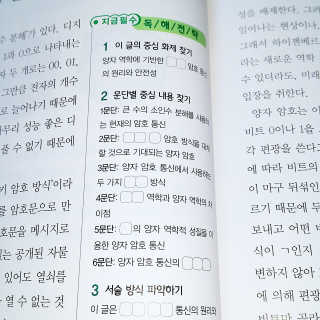 분해'가 있다. 디지
1과 0으로 나타내는
두 개로는 00, 01,
그만큼 전자의 개수
로 늘어나기 때문에
아무리 성능 좋은 디
풀 수 없기 때문에
키 암호 방식'이라
를 암호문으로 만
암호문을 메시지로
는 공개된 자물
있어도 열쇠를
열 수 없는 것
지금필수 독해전략
1 이 글의 중심 화제 찾기
양자 역학에 기반한 □□ 암호 통신
의 원리와 안전성
2 문단별 중심 내용 찾기
1문단: 큰 수의 소인수 분해를 사용하
는 현재의 암호화
2문단: □□□ 암호 방식을 대체
할 것으로 기대되는 양자 암호
3문단: 양자 암호 통신에서 사용하는
두 가지 □□ 방식
4문단: □□ 역학과 양자 역학의 차
이점
5문단: □의 양자 역학적 성질을 이
용한 양자 암호 통신
6문단: 양자 암호 통신의 □□□
3 서술 방식 파악하기
이 글은 □□□ 통신의 원리와
성을 배제한다.
일이나는 현상이나
그래서 하이젠베르
라는 새로운 역학
수 있더라도, 미래
입장을 취한다.
양자 암호는 이
비트 0이나 1을
각 편광을 쓴다고
에 따라 비트의
이 마구 뒤섞인
르기 때문에 도
보내고 어떤 비
식이 ㄱ인지
변하지 않아
에 의해 편광